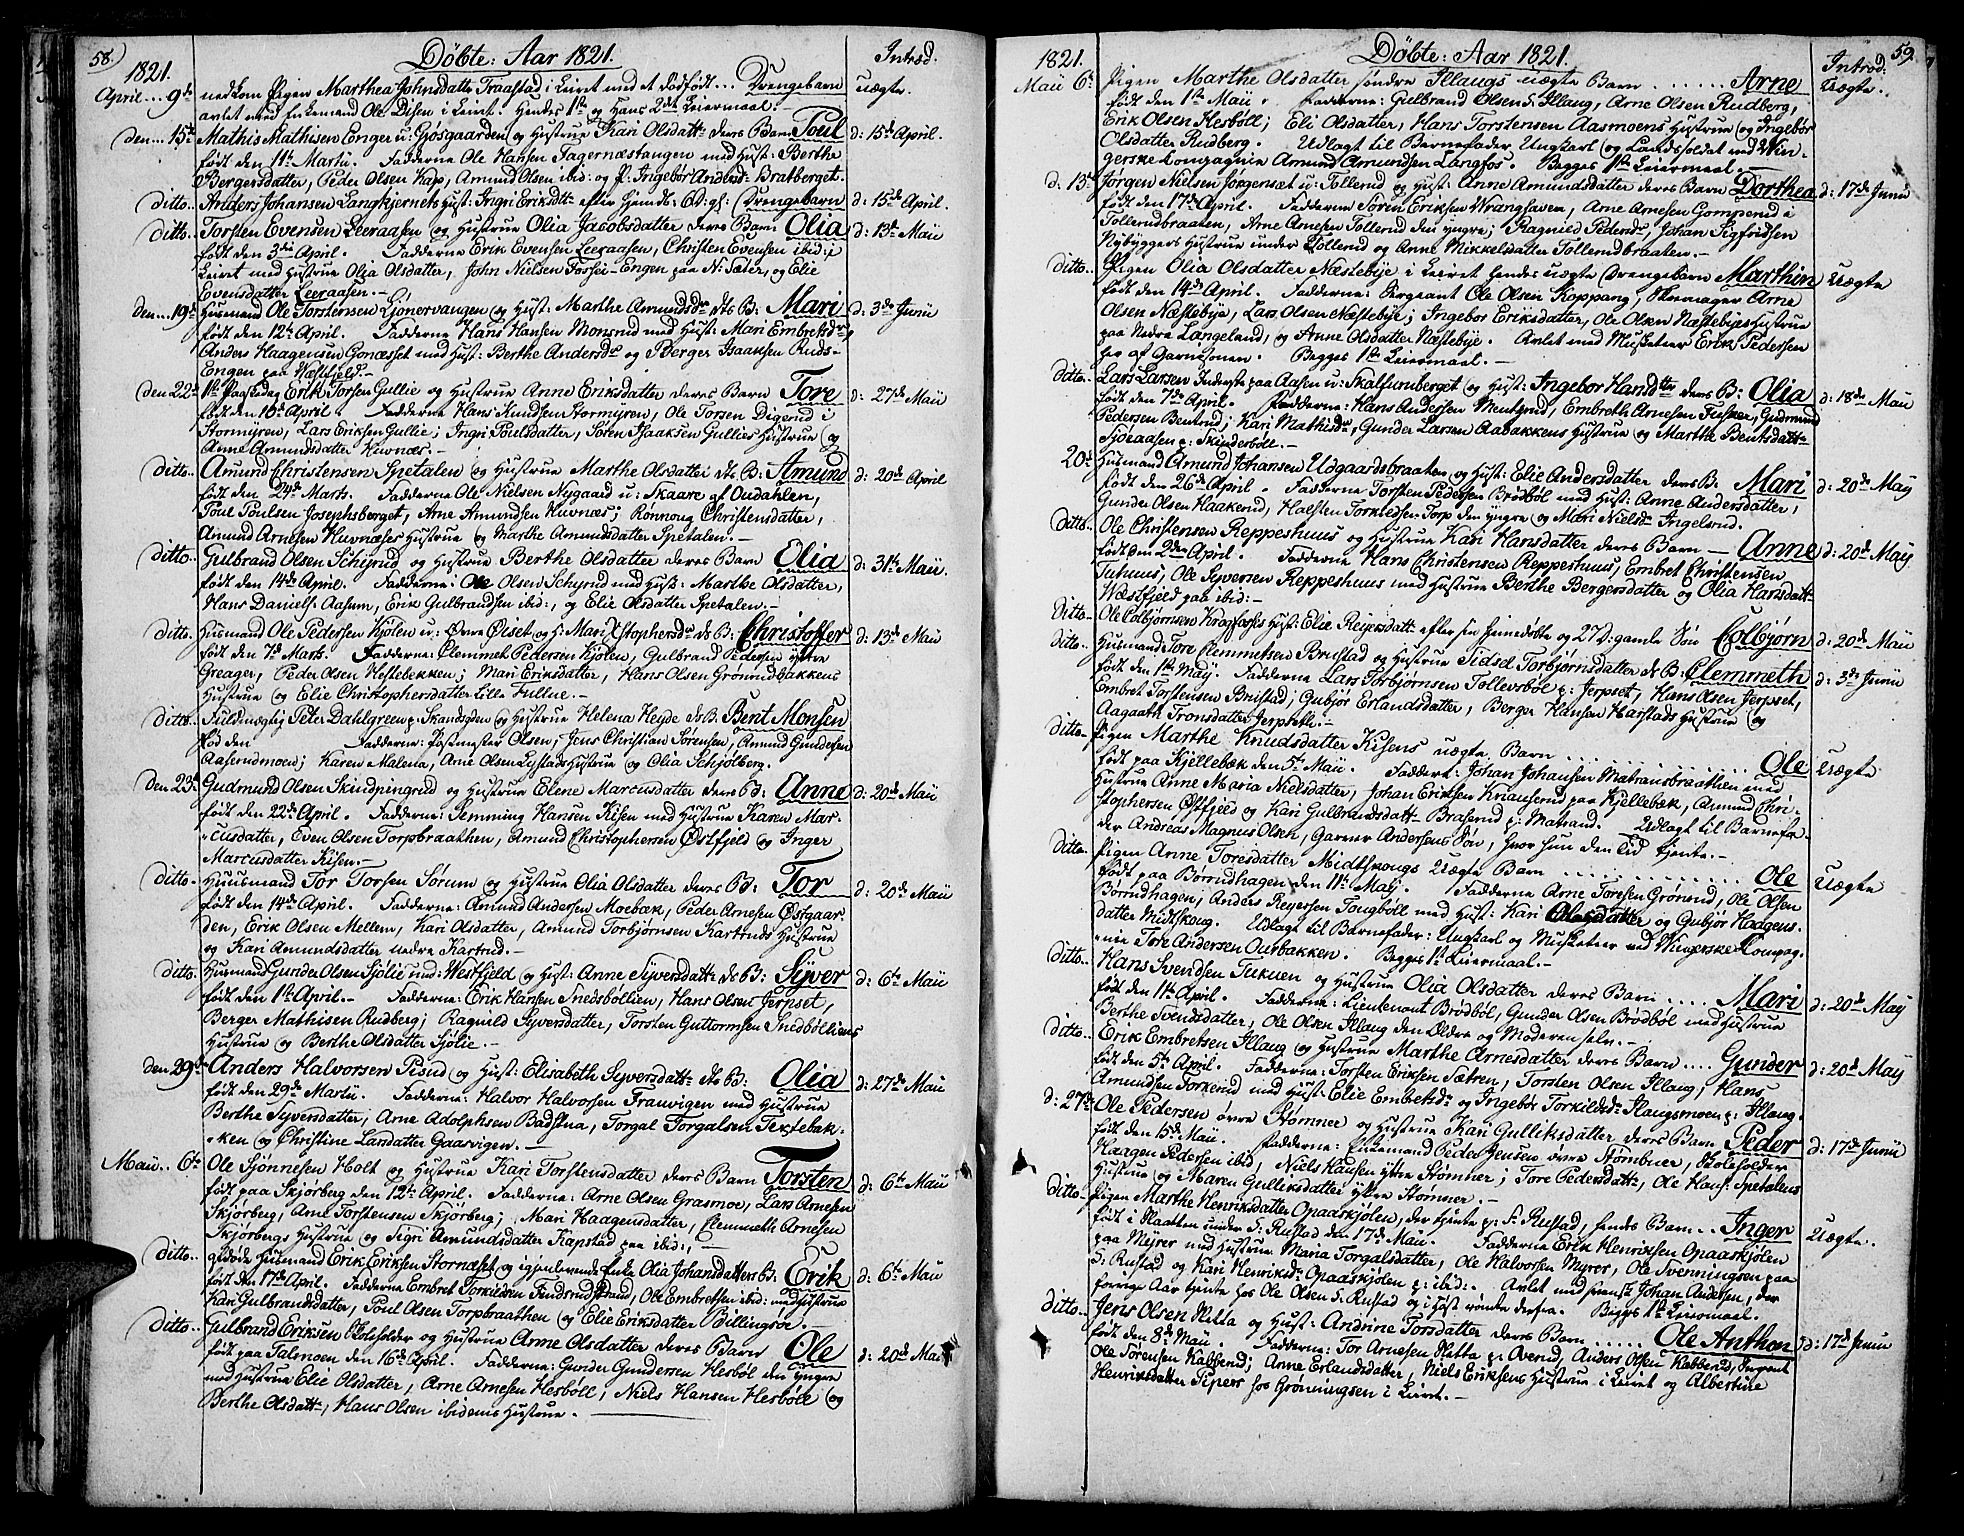 58.)
Döbte: Aar 1821.
Introd.
1821.
April... 9de nedkom Pigen Marthea Johnsdatter Traastad i Leiret med et dödfödt... Drengebarn uægte.
avlet med Enkemand Ole Olsen Disen i Leiret. Hendes 1ste og Hans 2det Leiermaal.
den... 15de Mathis Mathisen Enger u: Gosgaarden og Hustrue Kari Olsdattr deres Barn Poul d: 15de April.
födt den 11te Martii. Fadderne Ole Hansen Fagernæstangen med Hust: Berthe
Bergersdatter, Peder Olsen Kap, Amund Olsen ibid: og P: Ingebör Andersd: Bratberget.
Ditto.. Anders Johansen Langkjernets Hust: Ingri Eriksdtr efter hjemdt: 6 D: gl: Drengebarn d: 15de April.
ditto.. Torsten Evensen Leeraasen og Hustrue Olia Jacobsdatter deres Barn Olia d: 13de Maii
födt den 3die April. Fadderne Erik Evensen Leeraasen, Christen Evensen ibid: i
Leiret med Hustrue Olia Olsdatter, John Nielsen Fossei-Engen paa N: Sæter, og Elie
Evensdatter Leeraasen.
den... 19de Husmand Ole Torstensen Ljönervangen og Hust: Marthe Amundsdr ds B: Mari d. 3de Junii
födt den 12te April. Fadderne Hans Hansen Monsrud med Hust: Mari Embretsdr,
Anders Haagensen Gonæsset med Hust: Berthe Andersdr og Berger Isaaksen Ruds-
Engen paa Wæstfjeld.
den 22de 1ste Paaskedag Erik Torsen Gullie og Hustrue Anne Eriksdatter deres Barn Tore d: 27de Maii
födt den 10de April Fadderne Hans Knudsen Stormyren, Ole Torsen Digerud i
Stormyren, Lars Eriksen Gullie; Ingri Poulsdatter, Sören Isaaksen Gullies Hustrue og
Anne Amundsdatter Huvnæs.
ditto.. Amund Christensen Spetalen og Hustrue Marthe Olsdatter ds B: Amund d: 20de April
födt den 24de Marts. Fadderne Ole Nielsen Nygaard u: Skaare af Oudahlen,
Poul Poulsen Josephsberget, Arne Amundsen Huvnæs; Rönnoug Christensdatter,
Amund Arnesen Huvnæses Hustrue og Marthe Amundsdatter Spetalen.
ditto.. Gulbrand Olsen Schyrud og Hustrue Berthe Olsdatter deres Barn Olia d: 31te Maii.
födt den 14de April. Fadderne: Ole Olsen Schyrud med Hust: Marthe Olsdatter,
Hans Daniels: Aasum, Erik Gulbrandsen ibid:, og Elie Olsdatter Spetalen.
ditto.. Husmand Ole Pedersen Kjölen u: Övre Öiset og H: Mari Xstophersdr ds B: Christoffer d: 13de Maii
födt den 7de Marts. Fadderne: Clemmet Pedersen Kjölen, Gulbrand Pedersen yttre
Greager, Peder Olsen Hestebekken; Mari Eriksdatter, Hans Olsen Grönrudbakkens
Hustrue og Elie Christophersdatter Lille Fultne.
ditto.. Fuldmægtig Peter Dahlgreen p: Skandsgden og Hustrue Helena Heyde ds B: Bent Monsen
föd den Fadderne: Postmester Olsen, Jens Christian Sörensen, Amund Gundersen
Aaserudmoen; Karen Malena, Arne Olsen Lystads Hustrue og Olia Schjölberg.
den 23de Gudmund Olsen Skindpengrud og Hustrue Elene Marcusdatter deres B: Anne d: 20de Maii
födt den 22de April. Fadderne: Flemming Hansen Kisen med Hustrue Karen Mar-
cusdatter, Even Olsen Torpbraathen, Amund Christophersen Östfjeld og Inger
Marcusdatter Kisen.
ditto.. Huusmand Tor Torsen Sörum og Hustrue Olia Olsdatter deres B: Tor d: 20de Maii
födt den 14de April. Fadderne: Amund Andersen Moebæk, Peder Arnesen Östgaar-
den, Erik Olsen Mellem, Kari Olsdatter, Amund Torbjörnsen Kartruds Hustrue
og Kari Amundsdatter nedre Kartrud.
ditto.. Husmand Gunder Olsen Sjölie und: Westfjeld og Hust: Anne Syversdattr ds B: Syver d: 6te Maii
födt den 1ste April. Fadderne: Erik Hansen Snedsböllien, Hans Olsen Jernset,
Berger Mathisen Rudberg; Ragnild Syversdatter, Torsten Guttormsen Snedbölliens
Hustrue og Berthe Olsdatter Sjölie.
den 29de Anders Halvorsen Pesud og Hust: Elisabeth Syversdattr ds B: Olia d: 27de Maii
födt den 29de Martii. Fadderne: Halvor Halvorsen Frauvigen med Hustrue
Berthe Syversdatter, Arne Adolphsen Badstua, Torgal Torgalsen Textebak-
ken og Christine Larsdatter Gaasvigen.
Maii.. 6te Ole Sjönnesen Holt og Hustrue Kari Torstensdatter deres Barn Torsten d: 6te Maii
födt paa Skjörberg den 12te April. Fadderne: Arne Olsen Grasmoe, Lars Arnesen
Skjörberg, Arne Torstensen Skjörberg; Mari Haagensdatter, Clemmeth Arnesen
Skjörbergs Hustrue og Sigri Amundsdatter Kapstad paa ibid:,
ditto.. Afdöde Husmand Erik Eriksen Stornæset og igjenlevende Enke Olia Johansdatters B: Erik d: 6te Maii
födt den 17de April. Fadderne Embret Torkildsen Findsrud Strand, Ole Embretsen ibid: med Hustrue
Kari Gulbrandsdatter, Poul Olsen Torpbraathen og Elie Eriksdatter Billingsöe.
Ditto.. Gulbrand Eriksen Skoleholder og Hustrue Anne Olsdatter deres Barn Ole d: 20de Maii
födt paa Talmoen den 16de April. Fadderne: Gunder Gundersen Hesböl den yngre
med Hustrue Elie Olsdatter, Arne Arnesen Hesböll, Niels Hansen Hesböll og
Berthe Olsdattr, Hans Olsen ibidems Hustrue.
59.
Döbte: Aar 1821.
Introd.
1821.
Maii 6te Pigen Marthe Olsdatter söndre Illaugs uægte Barn ...... Arne Uægte.
födt den 1ste Maii. Fadderne: Gulbrand Olsen S. Illaug, Arne Olsen Rudberg,
Erik Olsen Hesböll; Eli Olsdatter, Hans Torstensen Aasmoens Hustrue og Ingebör
Olsdatter Rudberg. Udlagt til Barnefader, Ungkarl og Landsoldat ved Win-
gerske Kompagnie Amund Amundsen Langfos. Begges 1ste Leiermaal.
d: 13de Jörgen Nielsen Jörgensæt u: Tollerud og Hust: Anne Amundsdatter deres Barn Dorthea d: 17de Junii
födt den 17de April. Fadderne Sören Eriksen Wranghaven, Arne Arnesen Gomperud i
Tollerudbraaten, Arne Arnesen Tollerud den yngre; Ragnild Pedersdr, Johan Sigfridsen
Nybyggers Hustrue under Tollerud og Anne Mikkelsdatter Tollerudbraaten.
ditto.. Pigen Olia Olsdatter Næstebye i Leiret hendes uægte Drengebarn Marthin Uægte
födt den 14de April. Fadderne: Sergeant Ole Olsen Koppang, Skomager Arne
Olsen Næstebye, Lars Olsen Næstebye; Ingebor Eriksdatter, Ole Olsen Næstebyes Hustrue
paa Nedre Langeland, og Anne Olsdatter Næstebye. Avlet med Musketeer Erik Pedersen
her af Garnisonen. Begges 1ste Leiermaal.
ditto.. Lars Larsen Inderste paa Aasen u: Skalfurnberget og Hust: Ingebor Hansdtter deres B: Olia d: 18de Maii
födt den 7de April. Fadderne: Hans Andersen Mentzrud, Embreth Arnesen Fusker, Gudmund
Pedersen Bentrud; Kari Mathisdr, Gunder Larsen Aabakkens Hustrue og Marthe Bentsdattr
Sjöeaasen p: Skinderböll.
20de Husmand Amund Johansen Udgaardsbraaten og Hust: Elie Andersdatter deres B: Mari d: 20de May
födt den 26de April. Fadderne Torsten Pedersen Brödböl med Hust: Anne Andersdatter,
Gunder Olsen Haakerud, Halsten Torkildsen Torp den yngre og Mari Nielsdr Ingelsrud.
ditto.. Ole Christensen Reppeshuus og Hustrue Kari Hansdatter deres Barn — Anne d: 20de May
födt den 2den April. Fadderne Hans Christensen Reppeshuus, Embret Christensen
Tuhuus, Ole Syversen Reppeshuus med Hustrue Berthe Bergersdatter og Olia Hansdattr
Wæstfjeld paa ibid:
Ditto Ole Colbjörnsen Kragfoss's Hust: Elie Reiersdattr efter sin hjemdöbte og 27 D: gamle Sön Colbjörn d: 20de Maii
ditto.. Husmand Tore Clemmetsen Brustad og Hustrue Sidsel Torbjörnsdatter ds B: Clemmeth d: 3de Junii
födt den 1ste May. Fadderne Lars Torbjörnsen Tollevsböl p: Jerpset, Hans Olsen Jerpset,
Embret Torstensen Brustad; Gubjör Erlandsdatter, Berger Hansen Harstads Hustrue og
Aagaath Tronsdatter Jerpseth.
ditto Pigen Marthe Knudsdatter Kisens uægte Barn ...... Ole Uægte
födt paa Kjellebæk den 5te Maii. Faddere: Johan Johansen Matransbraathen med
Hustrue Anne Maria Nielsdatter, Johan Eriksen Knauserud paa Kjellebæk, Amund Chri-
stophersen Östfjeld og Kari Gulbrandsdattr Braserud p: Matrand. Udlagt til Barnefa-
der Andreas Magnus Olsen, Garver Andersens Sön, hvor hun den Tid tjente.
ditto.. Pigen Anne Toresdatter Midtskougs Uægte Barn ...... Ole Uægte
födt paa Börrudhagen den 11te May. Fadderne Arne Toresen Grönerud, Ole Olsen
Börrudhagen, Anders Reyersen Tougböll med Hust: Kari Olsdatter og Gubjör Haagens-
datter Midtskoug. Udlagt til Barnefader: Ungkarl og Musketeer ved Wingerske Kompag-
nie Tore Andersen Ousbakken. Begges 1ste Leiermaal.
ditto.. Hans Svendsen Tukuen og Hustrue Olia Olsdatter deres Barn .... Mari d: 20de May
födt den 11te April. Fadderne: Lieutenant Brödböl, Gunder Olsen Brödböl med Hustrue
Berthe Svendsdatter, Ole Olsen Illaug den Ældre og Moderen selv.
ditto.. Erik Embretsen Illaug og Hustrue Marthe Arnesdatter deres Barn .... Gunder d: 20de May
födt den 5te April. Fadderne: Torsten Eriksen Sætren, Torsten Olsen Illaug, Hans
Amundsen Torkerud med Hust: Elie Embretsdr og Ingebör Torkildsdr Haugsmoen p: Illaug.
d: 27de Ole Pedersen övre Stömner og Hustrue Kari Gulliksdatter deres Barn Peder d: 17de Junii
födt den 15de Maii. Fadderne: Enkemand Peder Jensen övre Stömner, Skoleholder
Haagen Pedersen ibid, Niels Hansen yttre Stömner; Tore Pedersdattr, Ole Hans: Spetalens
Hustrue og Maren Gulliksdatter yttre Stömner.
ditto.. Pigen Marthe Henriksdatter Opaaskjölen, der tjente p: S: Rustad, hendes Barn .. Inger Uægte.
födt i Plaatten under S: Rustad den 17de Maii. Fadderne Erik Henriksen Opaaskjölen
paa Myrer med Hustrue Maria Torgalsdatter, Ole Halvorsen Myrer, Ole Svenningsen paa
S: Rustad og Kari Henriksdr Opaaskjölen p: ibid:. Avlet med Svensk Johan Andersen, der
forrige Aar tjente hos Ole Olsen S. Rustad og i Höst römte derfra. Begges 1ste Leiermaal.
ditto.. Jens Olsen Sletta og Hust: Andrine Torsdatter deres Barn ...... Ole Anthon d: 17de Junii
födt den 8de Maii. Fadderne: Tor Arnesen Sletta p: Overud, Anders Olsen Kabberud,
Ole Sörensen Kabberud; Anne Erlandsdatter, Niels Eriksens Hustrue i Leiret og Albertine
Henriksdatter Piper hos Grönningsen i Leiret.